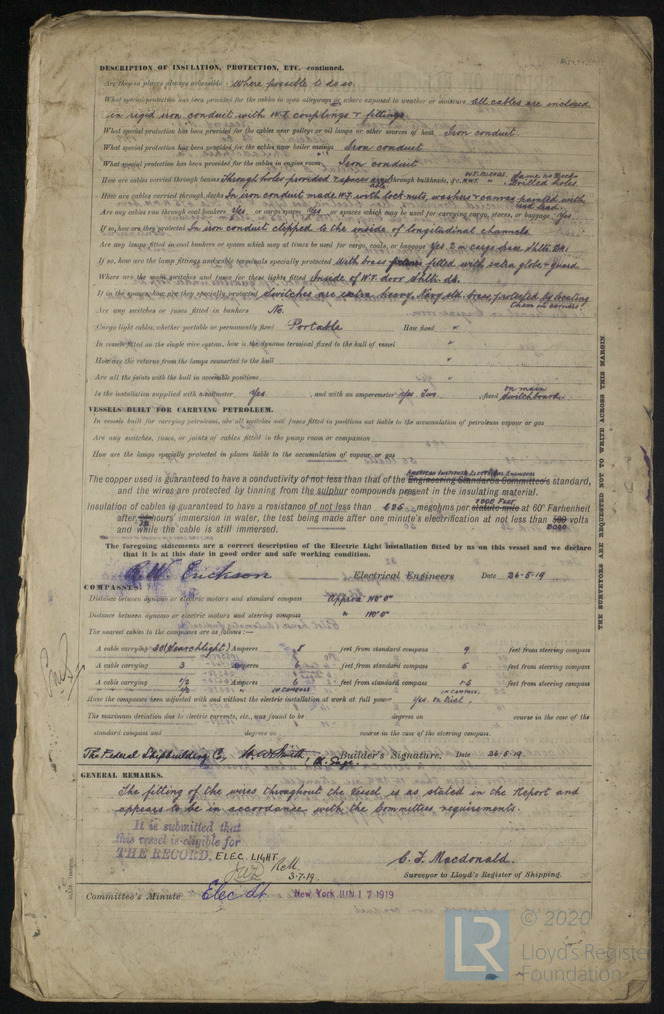 DESCRIPTION OF INSULATION, PROTECTION, ETC.—continued.
Are they in places always accessible Where possible to do so.
What special protection has been provided for the cables in open alleyways or where exposed to weather or moisture All cables are inclosed
in rigid iron conduit with W.T. couplings & fittings.
What special protection has been provided for the cables near galleys or oil lamps or other sources of heat Iron conduit.
What special protection has been provided for the cables near boiler casings Iron conduit
What special protection has been provided for the cables in engine room Iron conduit
How are cables carried through beams Through holes provided & spaces through bulkheads, &c. W.T. BLKHDS. Same as Decks N.W.T. " Drilled holes
How are cables carried through decks In iron conduit made W.T. with lock nuts, washers & canvas painted with red lead.
Are any cables run through coal bunkers Yes or cargo spaces Yes or spaces which may be used for carrying cargo, stores, or baggage Yes
If so, how are they protected In iron conduit clipped to the inside of longitudinal channels.
Are any lamps fitted in coal bunkers or spaces which may at times be used for cargo, coals, or baggage Yes in cargo space Shltr. Dk.
If so, how are the lamp fittings and cable terminals specially protected With brass fitted with extra globe & guard
Where are the main switches and fuses for these lights fitted Inside of W.T. door Shltr. dk.
If in the spaces, how are they specially protected Switches are extra heavy, Navy std. brass, protected by locating them in corners.
Are any switches or fuses fitted in bunkers No.
Cargo light cables, whether portable or permanently fixed Portable How fixed "
In vessels fitted on the single wire system, how is the dynamo terminal fixed to the hull of vessel "
How are the returns from the lamps connected to the hull "
Are all the joints with the hull in accessible positions "
Is the installation supplied with a voltmeter Yes, and with an amperemeter Yes Two, fixed on main Switchboard.
VESSELS BUILT FOR CARRYING PETROLEUM.
In vessels built for carrying petroleum, are all switches and fuses fitted in positions not liable to the accumulation of petroleum vapour or gas
Are any switches, fuses, or joints of cables fitted in the pump room or companion
How are the lamps specially protected in places liable to the accumulation of vapour or gas
AMERICAN INSTITUTE ELECTRICAL ENGINEERS
The copper used is guaranteed to have a conductivity of not less than that of the Engineering Standards Committee's standard,
and the wires are protected by tinning from the sulphur compounds present in the insulating material.
1000 FEET
Insulation of cables is guaranteed to have a resistance of not less than 625 megohms per statute mile at 60° Farhenheit
after hours' immersion in water, the test being made after one minute's electrification at not less than 500 volts
and while the cable is still immersed.
The foregoing statements are a correct description of the Electric Light installation fitted by us on this vessel and we declare
that it is at this date in good order and safe working condition.
Erickson Electrical Engineers Date 26-5-19
COMPASSES.
Distance between dynamo or electric motors and standard compass Approx 110' 0"
Distance between dynamo or electric motors and steering compass " 110' 0"
The nearest cables to the compasses are as follows:—
A cable carrying 30 (Searchlight) Amperes 8 feet from standard compass 9 feet from steering compass
A cable carrying 3 Amperes 6 feet from standard compass 5 feet from steering compass
A cable carrying 1/2 Amperes 6 feet from standard compass feet from steering compass
1/2 " IN COMPASS IN COMPASS.
Have the compasses been adjusted with and without the electric installation at work at full power Yes. On trial.
The maximum deviation due to electric currents, etc., was found to be degrees on course in the case of the
standard compass and degrees on course in the case of the steering compass.
The Federal Shipbuilding Co, Builder's Signature. Date 26-5-19
GENERAL REMARKS.
The fitting of the wires throughout the vessel is as stated in the Report and
appears to be in accordance with the Committee's requirements.
It is submitted that
this vessel is eligible for
THE RECORD. ELEC. LIGHT
3-7-19.
C. F. Macdonald.
Surveyor to Lloyd's Register of Shipping.
Committee's Minute Elec Lt New York JUN 17 1919
THE SURVEYORS ARE REQUESTED NOT TO WRITE ACROSS THIS MARGIN
LR © 2020
Lloyd's Register
Foundation